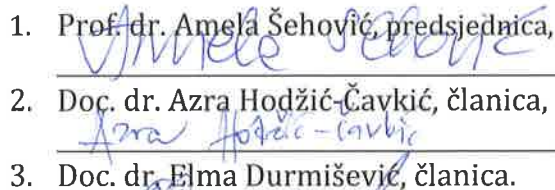 1. Prof. dr. Amela Šehović, predsjednica,
Amela Šehović
2. Doc. dr. Azra Hodžić-Čavkić, članica,
Azra Hodžić-Čavkić
3. Doc. dr. Elma Durmišević, članica.